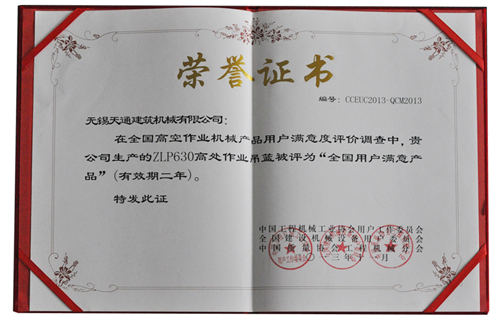 荣誉证书
编号：CCEUC2013-QCM2013
无锡天通建筑机械有限公司：
在全国高空作业机械产品用户满意度评价调查中，贵
公司生产的ZLP630高处作业吊蓝被评为“全国用户满意产
品”（有效期二年）。
特发此证
中国工程机械工业协会用户工作委员会
全国建设机械设备用户委员会
中国质量协会工程机械分会
三年 月